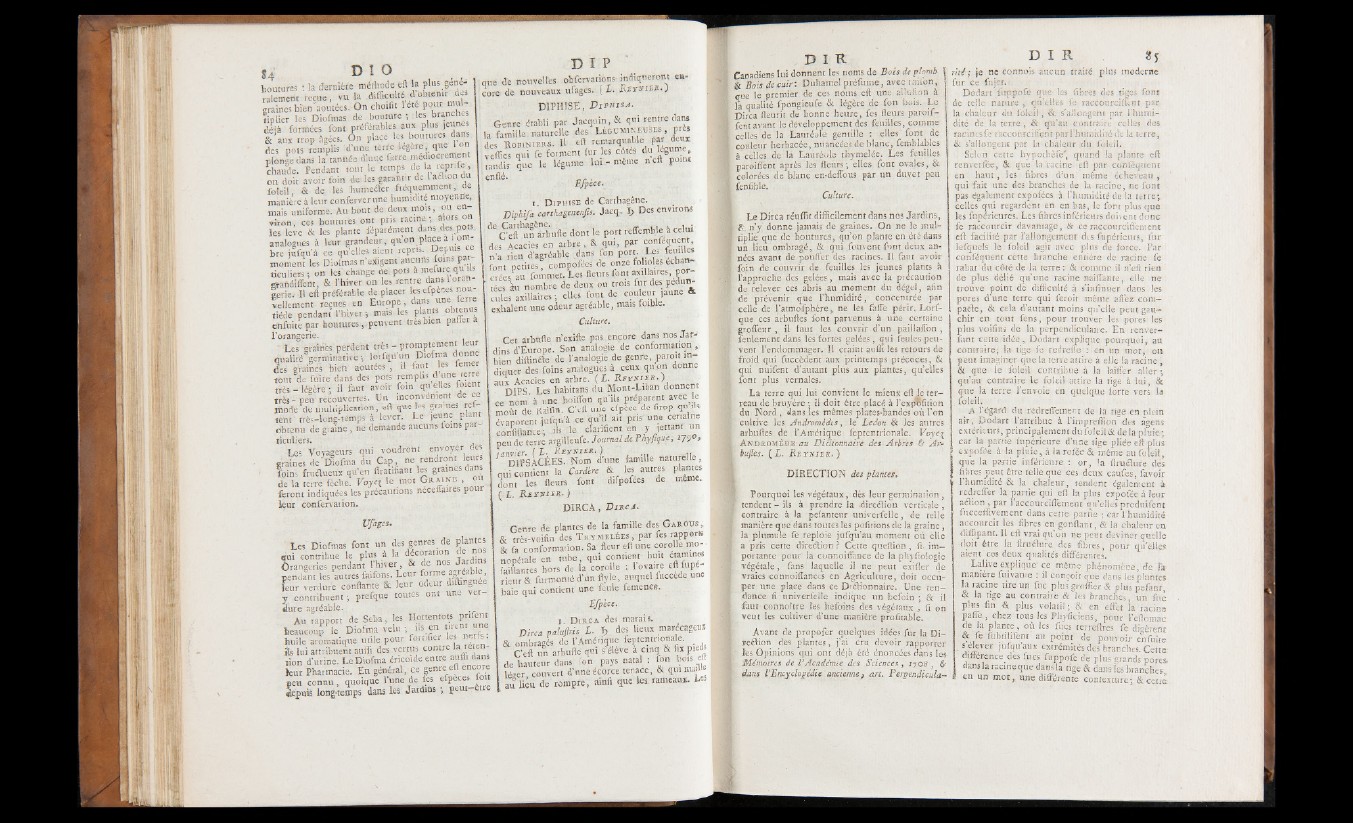 84 DIO
boutures : la dernière méthode eſt la plus géné-
ralement reçue, vu la difficulté d'obtenir des
graines bien aoutées. On choiſit l'été pour mul-
tiplier les Dioſmas de bouture ; les branches
déjà formées ſont préférables aux plus jeunes
& aux trop âgées. On place les boutures dans
des pots remplis d'une terre légère, que l'on
plonge dans la tannée d'une ſerre médiocrement
chaude. Pendant tout le temps de la repriſe,
on doit avoir ſoin de les garantir de l'action du
ſoleil, & de les humecter fréquemment, de
manière à leur conſerver une humidité moyenne,
mais uniforme. Au bout de deux mois, ou en-
viron, ces boutures ont pris racine ; alors on
les leve & les plante ſéparément dans des pots
analogues à leur grandeur, qu'on place à l'om-
bre juſqu'à ce qu'elles aient repris. Depuis ce
moment les Dioſmas n'exigent aucuns ſoins par-
ticuliers ; on les change de pots à meſure qu'ils
grandiſſent, & l'hiver on les rentre dans l'oran-
gerie. Il eſt préférable de placer les eſpèces nou-
vellement reçues en Europe, dans une ſerre
tiède pendant l'hiver ; mais les plants obtenus
enſuite par boutures, peuvent très bien paſſer à
l'orangerie.
Les graines perdent très-promptement leur
qualité germinative ; lorſqu'un Dioſma donne
des graines bien aoutées, il faut les ſemer
tout de ſuite dans des pots remplis d'une terre
très-légère ; il faut avoir ſoin qu'elles ſoient
très-peu recouvertes. Un inconvénient de ce
mode de multiplication, eſt que les graines reſ-
tent très-long-temps à lever. Le jeune plant
obtenu de graine, ne demande aucuns ſoins par-
ticuliers.
Les Voyageurs qui voudront envoyer des
graines de Dioſma du Cap, ne rendront leurs
ſoins fructueux qu'en ſtratifiant les graines dans
de la terre ſèche. Voyez le mot GRAINE, où
ſeront indiquées les précautions néceſſaires pour
leur conſervation.
Uſages.
Les Dioſmas ſont un des genres de plantes
qui contribue le plus à la décoration de nos
Orangeries pendant l'hiver, & de nos Jardins
pendant les autres ſaiſons. Leur forme agréable,
leur verdure conſtante & leur odeur diſtinguée
y contribuent ; preſque toutes ont une ver-
dure agréable.
Au rapport de Seba, les Hottentots priſent
beaucoup le Dioſma velu ; ils en tirent une
huile aromatique utile pour fortifier les nerfs ;
ils lui attribuent auſſi des vertus contre la réten-
tion d'urine. Le Dioſma éricoïde entre auſſi dans
leur Pharmacie. En général, ce genre eſt encore
peu connu, quoique l'une de ſes eſpèces ſoit
depuis long-temps dans les Jardins ; peut-être
DIP
que de nouvelles obſervations indiqueront en-
core de nouveaux uſages. ( L. REYNIER. )
DIPHISE, DIPHISA.
Genre établi par Jacquin, & qui rentre dans
la famille naturelle des LÉGUMINEUSES, près
des ROBINIERS. Il eſt remarquable par deux
veſſies qui ſe forment ſur les côtés du légume,
tandis que le légume lui-même n'eſt point
enflé.
Eſpèce.
1. DIPHISE de Carthagène.
Diphiſa carthagenenſis. Jacq. ♄ Des environs
de Carthagène.
C'eſt un arbuſte dont le port reſſemble à celui
des Acacies en arbre, & qui, par conſéquent,
n'a rien d'agréable dans ſon port. Les feuilles
ſont petites, compoſées de onze folioles échan-
crées au ſommet. Les fleurs ſont axillaires, por-
tées au nombre de deux ou trois ſur des pédun-
cules axillaires ; elles ſont de couleur jaune &
exhalent une odeur agréable, mais foible.
Culture.
Cet arbuſte n'exiſte pas encore dans nos Jar-
dins d'Europe. Son analogie de conformation,
bien diſtincte de l'analogie de genre, paroît in-
diquer des ſoins analogues à ceux qu'on donne
aux Acacies en arbre. ( L. REYNIER. )
DIPS. Les habitans du Mont-Liban donnent
ce nom à une boiſſon qu'ils préparent avec le
moût de Raiſin. C'eſt une eſpèce de ſirop qu'ils
évaporent juſqu'à ce qu'il ait pris une certaine
conſiſtance ; ils le clarifient en y jettant un
peu de terre argilleuſe. Journal de Phyſique, 1790,
janvier. ( L. REYNIER. )
DIPSACÉES. Nom d'une famille naturelle,
qui contient la Cardère & les autres plantes
dont les fleurs ſont diſpoſées de même.
( L. REYNIER. )
DIRCA, DIRCA.
Genre de plantes de la famille des GAROUS,
& très-voiſin des THYMELÉES, par ſes rapports
& ſa conformation. Sa fleur eſt une corolle mo-
nopétale en tube, qui contient huit étamines
ſaillantes hors de la corolle : l'ovaire eſt ſupé-
rieur & ſurmonté d'un ſtyle, auquel ſuccède une
baie qui contient une ſeule ſemence.
Eſpèce.
1. DIRCA des marais.
Dirca paluſtris L. ♄ des lieux marécageux
& ombragés de l'Amérique ſeptentrionale.
C'eſt un arbuſte qui s'élève à cinq & ſix pieds
de hauteur dans ſon pays natal : ſon bois eſt
léger, couvert d'une écorce tenace, & qui maille
au lieu de rompre, ainſi que les rameaux. Les
DIR
Canadiens lui donnent les noms de Bois de plomb
& Bois de cuir : Duhamel préſume, avec raiſon,
que le premier de ces noms eſt une alluſion à
la qualité ſpongieuſe & légère de ſon bois. Le
Dirca fleurit de bonne heure, ſes fleurs paroiſ-
ſent avant le développement des feuilles, comme
celles de la Lauréole gentille : elles ſont de
couleur herbacée, nuancées de blanc, ſemblables
à celles de la Lauréole thymelée. Les feuilles
paroiſſent après les fleurs ; elles ſont ovales, &
colorées de blanc en-deſſous par un duvet peu
ſenſible.
Culture.
Le Dirca réuſſit difficilement dans nos Jardins,
& n'y donne jamais de graines. On ne le mul-
tiplie que de boutures, qu'on plante en été dans
un lieu ombragé, & qui ſouvent ſont deux an-
nées avant de pouſſer des racines. Il faut avoir
ſoin de couvrir de feuilles les jeunes plants à
l'approche des gelées, mais avec la précaution
de relever ces abris au moment du dégel, afin
de prévenir que l'humidité, concentrée par
celle de l'atmoſphère, ne les faſſe périr. Lorſ-
que ces arbuſtes ſont parvenus à une certaine
groſſeur, il faut les couvrir d'un paillaſſon,
ſeulement dans les fortes gelées, qui ſeules peu-
vent l'endommager. Il craint auſſi les retours de
froid qui ſuccèdent aux printemps précoces, &
qui nuiſent d'autant plus aux plantes, qu'elles
ſont plus vernales.
La terre qui lui convient le mieux eſt le ter-
reau de bruyère ; il doit être placé à l'expoſition
du Nord, dans les mêmes plates-bandes où l'on
cultive les Andromèdes, le Ledon & les autres
arbuſtes de l'Amérique ſeptentrionale. Voyez
ANDROMÈDE au Dictionnaire des Arbres & Ar-
buſtes. ( L. REYNIER. )
DIRECTION des plantes.
Pourquoi les végétaux, dès leur germination,
tendent-ils à prendre la direction verticale,
contraire à la peſanteur univerſelle, de telle
manière que dans toutes les poſitions de la graine,
la plumule ſe reploie juſqu'au moment où elle
a pris cette direction ? Cette queſtion, ſi im-
portante pour la connoiſſance de la phyſiologie
végétale, ſans laquelle il ne peut exiſter de
vraies connoiſſances en Agriculture, doit occu-
per une place dans ce Dictionnaire. Une ten-
dance ſi univerſelle indique un beſoin ; & il
faut connoître les beſoins des végétaux, ſi on
veut les cultiver d'une manière profitable.
Avant de propoſer quelques idées ſur la Di-
rection des plantes, j'ai cru devoir rapporter
les Opinions qui ont déjà été énoncées dans les
Mémoires de l'Académie des Sciences, 1708, &
dans l'Encyclopédie ancienne, art. Perpendicula-
DIR 85
rité ; je ne connois aucun traité plus moderne
ſur ce ſujet.
Dodart ſuppoſe que les fibres des tiges ſont
de telle nature, qu'elles ſe raccourciſſent par
la chaleur du ſoleil, & s'allongent par l'humi-
dité de la terre, & qu'au contraire celles des
racines ſe raccourciſſent par l'humidité de la terre,
& s'allongent par la chaleur du ſoleil.
Selon cette hypothèſe, quand la plante eſt
renverſée, & que la racine eſt par conſéquent
en haut, les fibres d'un même écheveau,
qui fait une des branches de la racine, ne ſont
pas également expoſées à l'humidité de la terre ;
celles qui regardent en en-bas, le ſont plus que
les ſupérieures. Les fibres inférieures doivent donc
ſe raccourcir davantage, & ce raccourciſſement
eſt facilité par l'allongement des ſupérieures, ſur
leſquels le ſoleil agit avec plus de force. Par
conſéquent cette branche entière de racine ſe
rabat du côté de la terre : & comme il n'eſt rien
de plus délié qu'une racine naiſſante, elle ne
trouve point de difficulté à s'inſinuer dans les
pores d'une terre qui ſeroit même aſſez com-
pacte, & cela d'autant moins qu'elle peut gau-
chir en tout ſens, pour trouver les pores les
plus voiſins de la perpendiculaire. En renver-
ſant cette idée, Dodart explique pourquoi, au
contraire, la tige ſe redreſſe : en un mot, on
peut imaginer que la terre attire à elle la racine,
& que le ſoleil contribue à la laiſſer aller ;
qu'au contraire le ſoleil attire la tige à lui, &
que la terre l'envoie en quelque ſorte vers le
ſoleil.
A l'égard du redreſſement de la tige en plein
air, Dodart l'attribue à l'impreſſion des agens
extérieurs, principalement du ſoleil & de la pluie ;
car la partie ſupérieure d'une tige pliée eſt plus
expoſée à la pluie, à la roſée & même au ſoleil,
que la partie inférieure : or, la ſtructure des
fibres peut être telle que ces deux cauſes, ſavoir
l'humidité & la chaleur, tendent également à
redreſſer la partie qui eſt la plus expoſée à leur
action, par l'accourciſſement qu'elles produiſent
ſucceſſivement dans cette partie ; car l'humidité
accourcit les fibres en gonflant, & la chaleur en
diſſipant. Il eſt vrai qu'on ne peut deviner quelle
doit être la ſtructure des fibres, pour qu'elles
aient ces deux qualités différentes.
Lahire explique ce même phénomène, de la
manière ſuivante : il conçoit que dans les plantes
la racine tire un ſuc plus groſſier & plus peſant,
& la tige au contraire & les branches, un ſuc
plus fin & plus volatil ; & en effet la racine
paſſe, chez tous les Phyſiciens, pour l'eſtomac
de la plante, où les ſucs terreſtres ſe digèrent
& ſe ſubtiliſent au point de pouvoir enſuite
s'élever juſqu'aux extrémités des branches. Cette
différence des ſucs ſuppoſe de plus grands pores
dans la racine que dans la tige & dans les branches,
en un mot, une différente contexture ; & cette